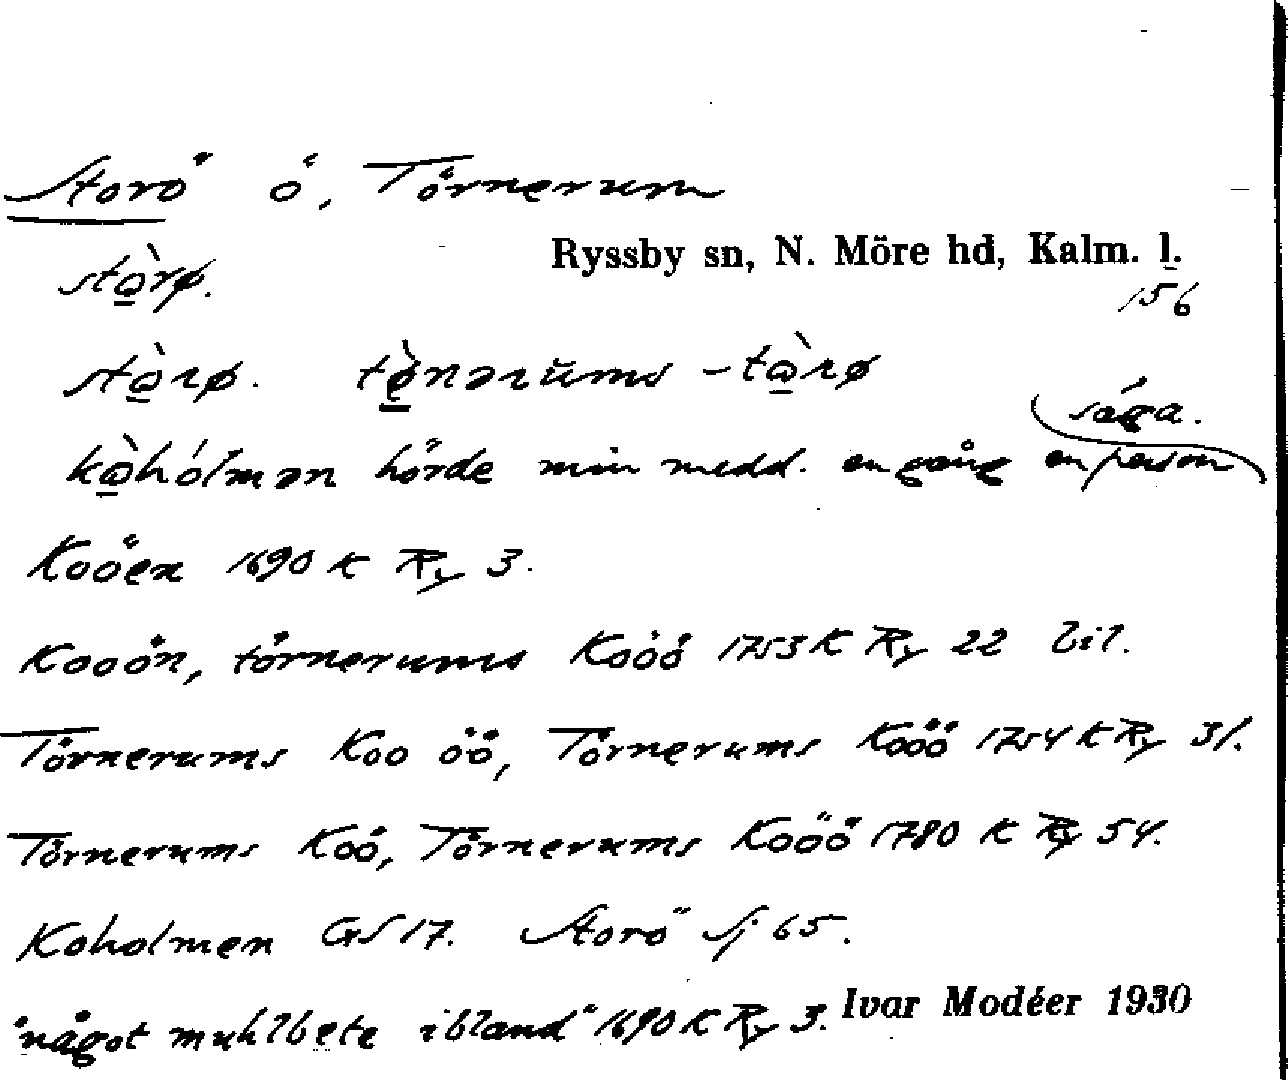 Storö ö, Törnerum
Ryssby sn, N. Möre hd, Kalm. l.
156
stàrø.
stàrø. tø̀nərŭms -tàrø
säga.
kàhólmən hörde min medd. en gång en person
Koöen 1690 K Ry 3.
Kooön, törnerums Koöö 1753 K Ry 22 bil.
Törnerums Koo öö, Törnerums Koöö 1754 K Ry 31.
Törnerums Koö, Törnerums Koöö 1780 K Ry 54.
Koholmen GS 17. Storö Sj 65.
"något muhlbete ibland" 1690 K Ry 3.
Ivar Modéer 1930